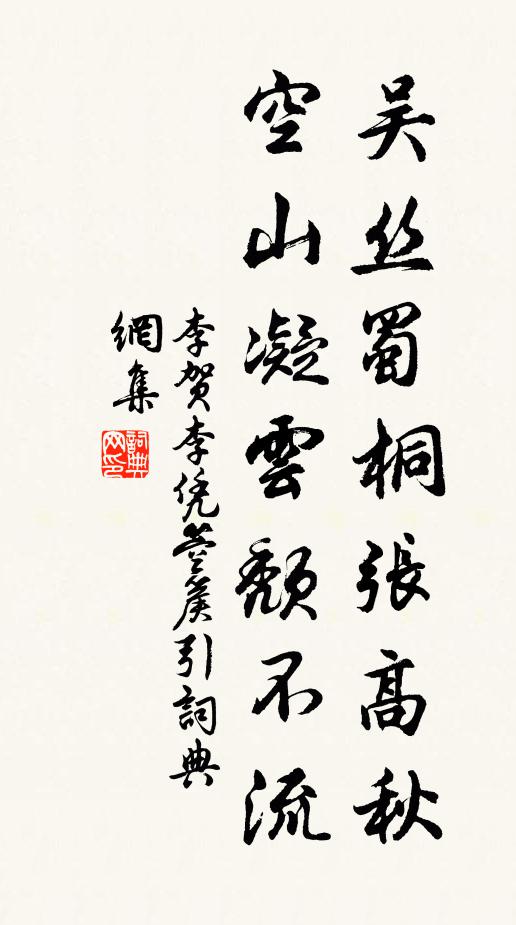 吴丝蜀桐張高秋
空山凝雲頹不流
李贺李凭箜篌引詞典
網集
詞典
网印